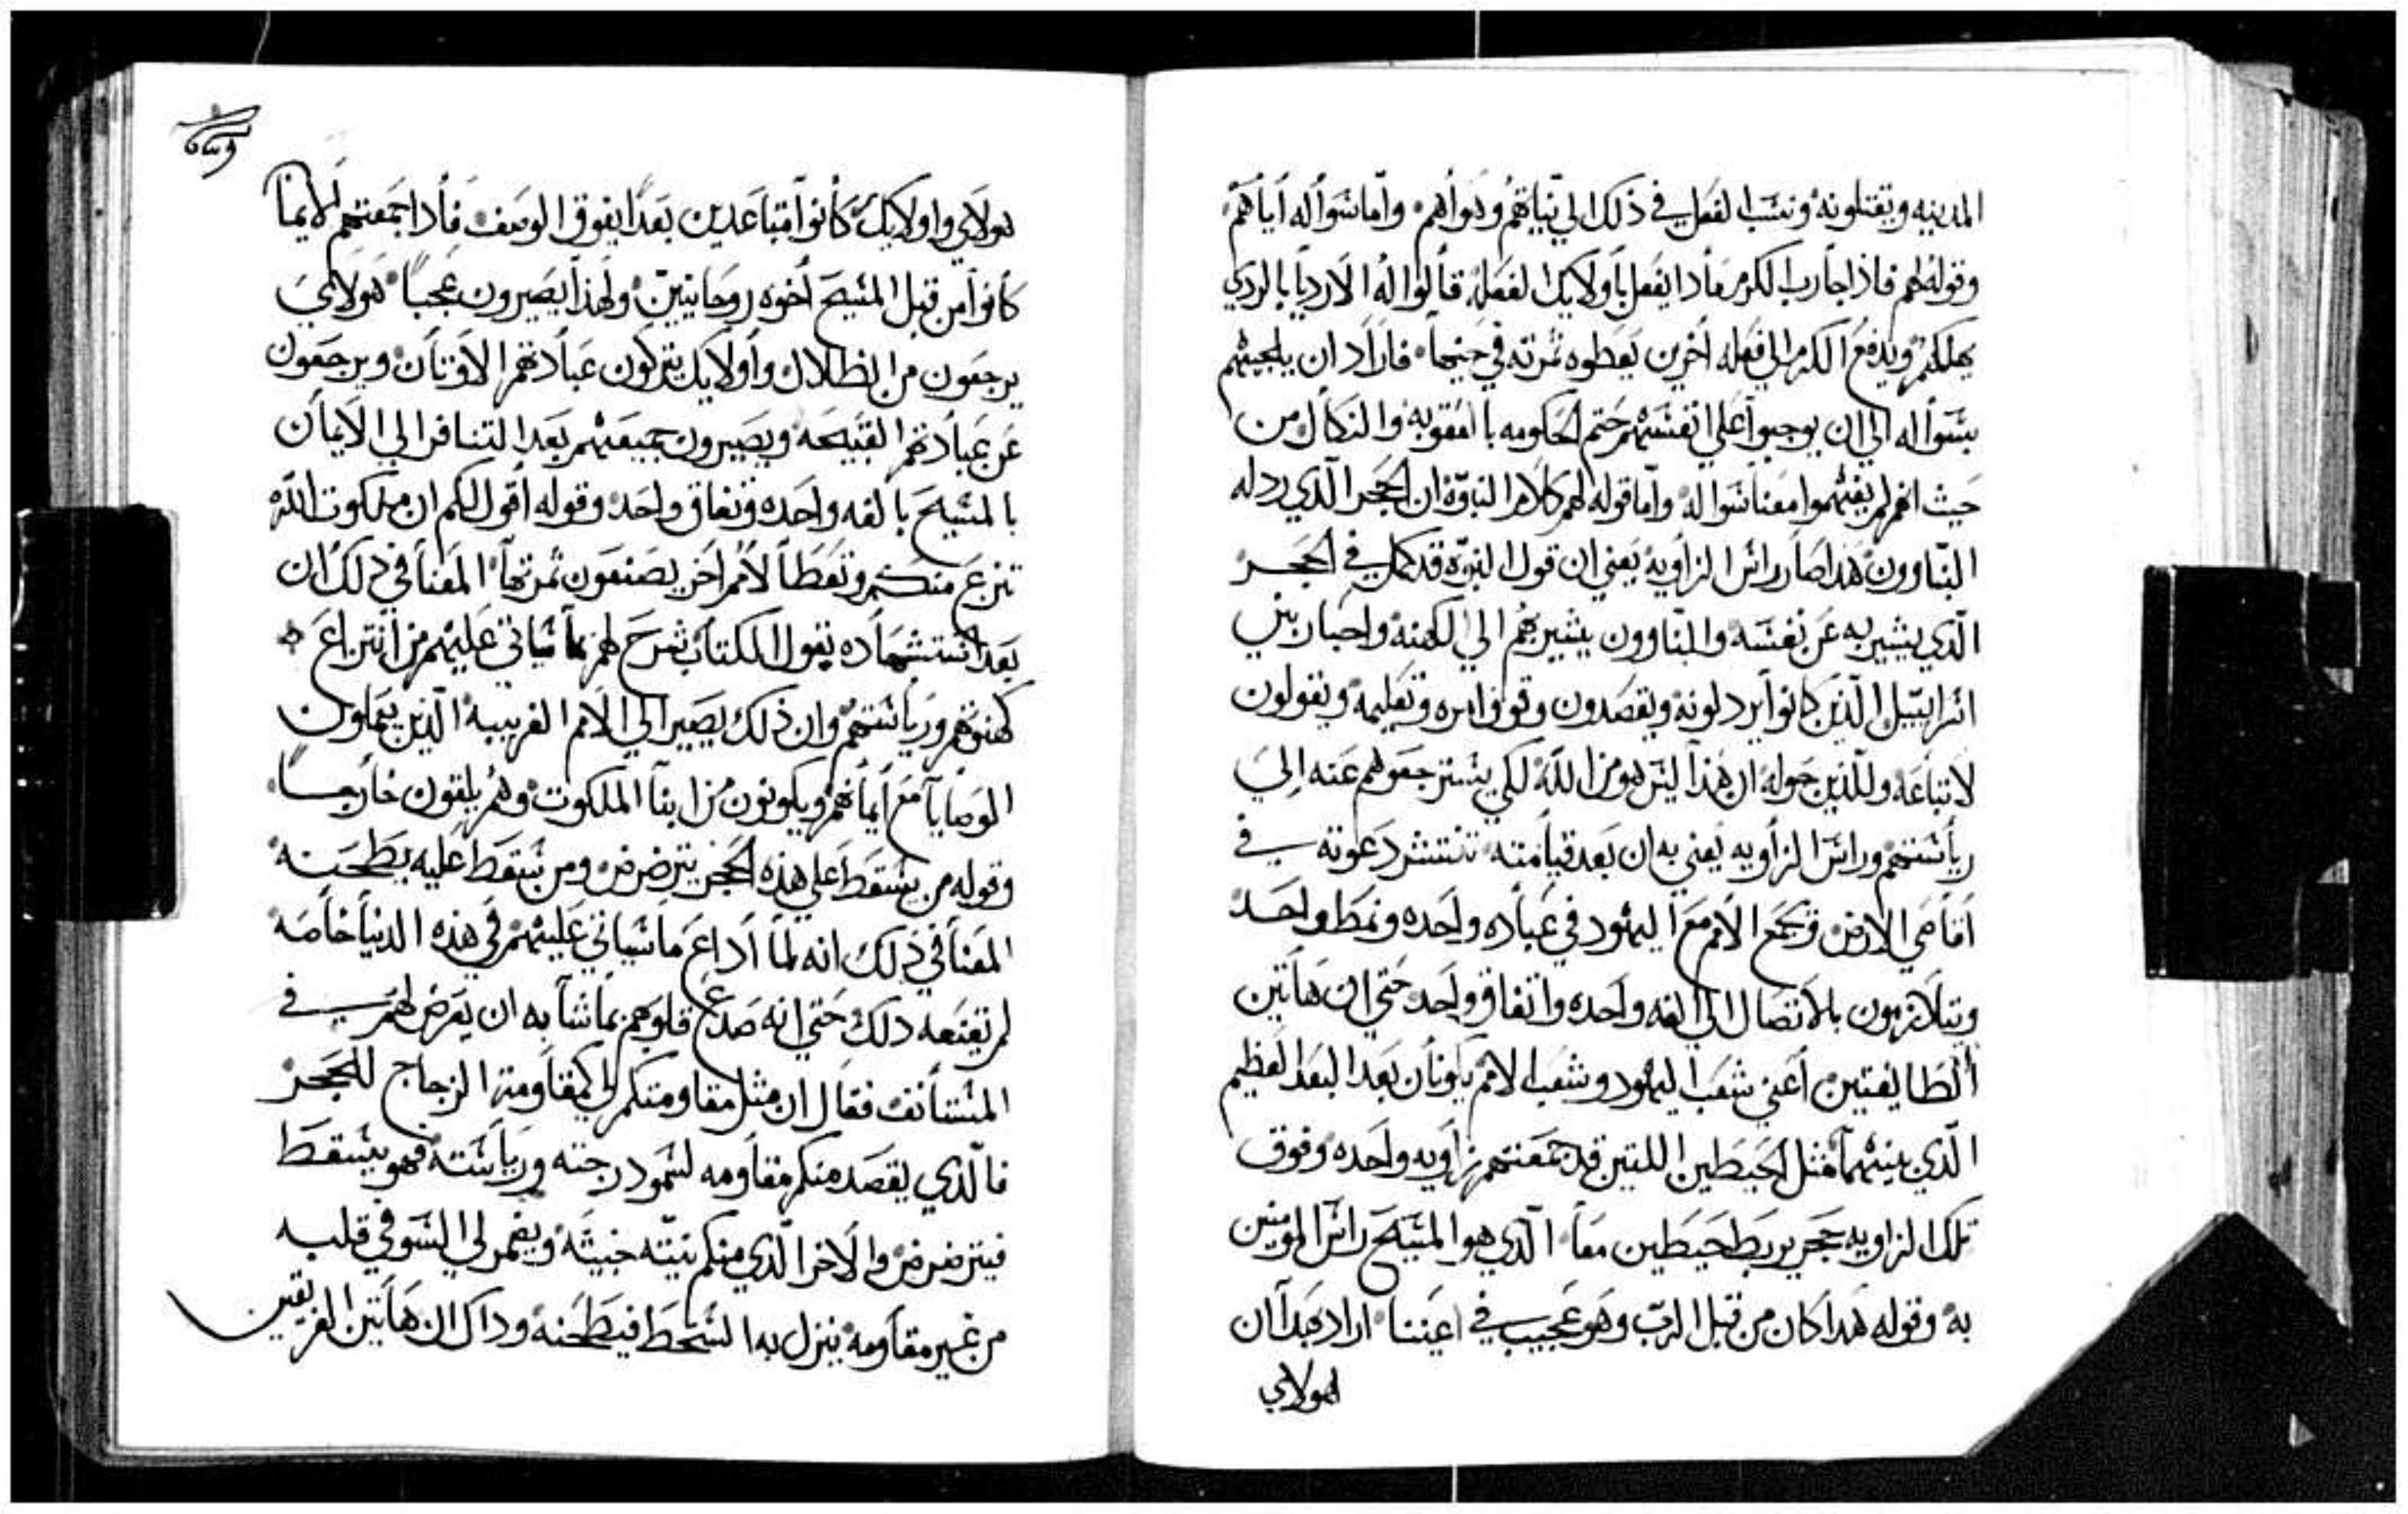 المدينه ويقتلونه ونسب الفعل في ذلك الي نياتهم وهواهم واما سواله اياهم
وقوله لهم فاذا جا رب الكرم مادا يفعل باولايك الفعله قالوا له الارديا بالردي
يهلكهم ويدفع الكرم الي فعله اخرين يعطوه تمرته في حينها فاراد ان يلجيهم
بسواله الي ان يوجبوا علي انفسهم حتم الحكومه بالعقوبه والنكال من
حيث انهم لم يفهموا معنا سواله واما قوله لهم كلام النبوة ان الحجر الذي ردله
البناوون هدا صار راس الزاويه يعني ان قول النبوة قد كمل في الحجر
الذي يشير به عن نفسه والبناوون يشير بهم الي الكهنه واحبار بني
اسراييل الذين كانوا يردلونه ويقصدون وقوف امره وتعليمه ويقولون
لاتباعه وللذين حوله ان هذا ليس هو من الله لكي يسترجعوهم عنه الي
رياستهم وراس الزاويه يعني به ان بعد قيامته تنتشر دعوته في
اقاصي الارض وتجمع الامم مع اليهود في عباده واحده ونمط واحد
ويتلازمون بالاتصال الي الفه واحده واتفاق واحد حتي ان هاتين
الطايفتين اعني شعب اليهود وشعب الامم يكونان بعد البعد العظيم
الذي بينهما مثل الحيطين اللتين قد جمعتهم زاويه واحده وفوق
تلك الزاويه حجر يربط حيطين معا الذي هو المسيح راس المومنين
به وقوله هدا كان من قبل الرب وهو عجيب في اعيننا اراد بهدا ان
هولاي
هولاي واولايك كانوا متباعدين بعدا يفوق الوصف فادا جمعتهم الايمان
كانوا من قبل المسيح اخوه روحانيين ولهذا يصيرون عجبا هولاي
يرجعون من الظلال واولايك يتركون عبادتهم الاوتان ويرجعون
عن عبادتهم القبيحه ويصيرون جميعهم بعد التنافر الي الايمان
بالمسيح بالفه واحده وتفاق واحد وقوله اقول لكم ان ملكوت الله
تنزع منكم وتعطا لامم اخر يصنعون تمرتها المعنا في ذلك ان
بعد استشهاده بقول الكتاب شرح لهم ما سياتي عليهم من انتزاع
كهنوتهم ورياستهم وان ذلك يصير الي الامم الغريبه الذين يعملون
الوصايا مع ايمانهم ويكونون من ابنا الملكوت وهم يلقون خارجا
وقوله من يسقط علي هذه الحجر يترضرض ومن سقط عليه يطحنه
المعنا في ذلك انه لما اداع ما سياتي عليهم في هذه الدنيا خاصه
لم تقنعه دلك حتي انه صدع قلوبهم بما شابه ان يعرض لهم في
المستانف فقال ان مثل مقاومتكم لي كمقاومة الزجاج للحجر
فالذي يقصد منكم مقاومه لسمو درجته ورياسته فهو يسقط
فيترضرض والاخر الذي منكم نيته خبيثه ويضمر لي السو في قلبه
من غير مقاومه ينزل به السخط فيطحنه وداك ان هاتين الفريقين